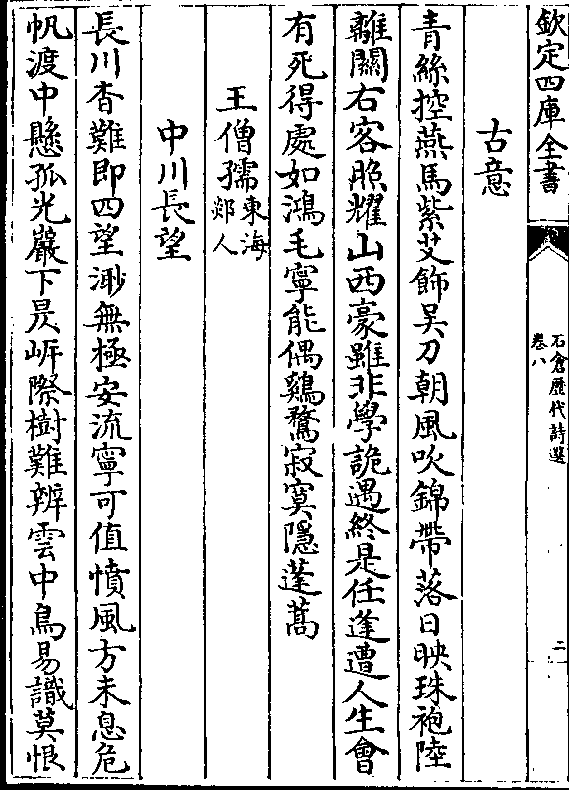 欽定四庫全書
石倉歴代詩選
卷八
二
古意
青絲控燕馬紫艾飾吴刀朝風吹錦帶落日映珠袍陸
離關右客照耀山西豪雖非學詭遇終是任逢遭人生會
有死得處如鴻毛寧能偶鷄鶩寂寞隱蓬蒿
王僧孺東海
郯人
中川長望
長川杳難即四望渺無極安流寧可值憤風方未息危
帆渡中懸孤光巖下昃岍際樹難辨雲中鳥易識莫恨